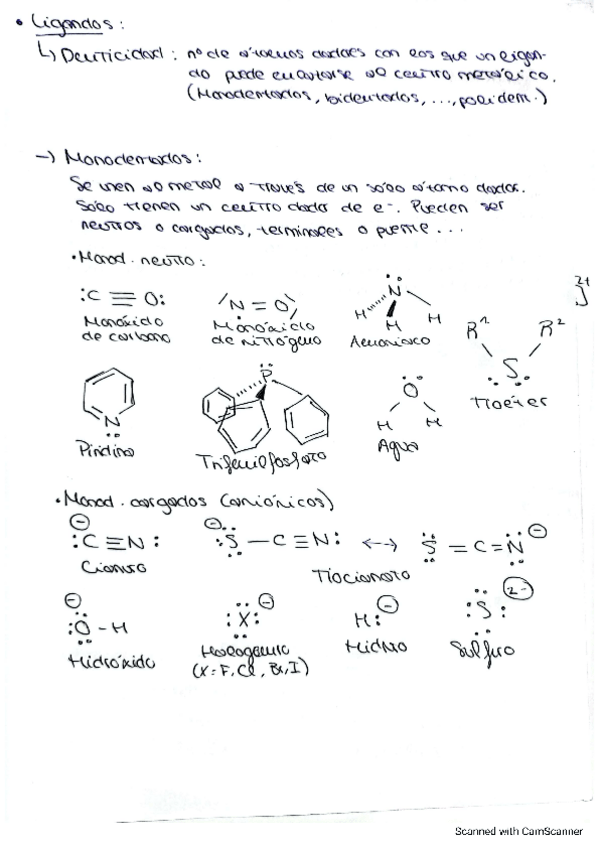 • Ligandos:
↳ Denticidad: nº de átomos dadores con los que un ligan-
do puede enlazarse al centro metálico.
(Monodentados, bidentados, ..., polident.)
→ Monodentados:
Se unen al metal a través de un sólo átomo dador.
Sólo tienen un centro dador de e⁻. Pueden ser
neutros o cargados, terminales o puente...
• Monod. neutro:
:C ≡ O:
Monóxido
de carbono
N = O
Monóxido
de nitrógeno
N
H H H
Amoniaco
R¹ R²
S
Tioéter
]2+
N
Piridina
P
Trifenilfosfato
O
H H
Agua
• Monod. cargados (aniónicos)
⊖ :C ≡ N:
Cianuro
⊖ :S — C ≡ N: ↔ S = C = N ⊖
Tiocianato
⊖ :O - H
Hidróxido
:X: ⊖
Halogenuro
(X = F, Cl, Br, I)
H: ⊖
Hidruro
:S: 2-
Sulfuro
Scanned with CamScanner